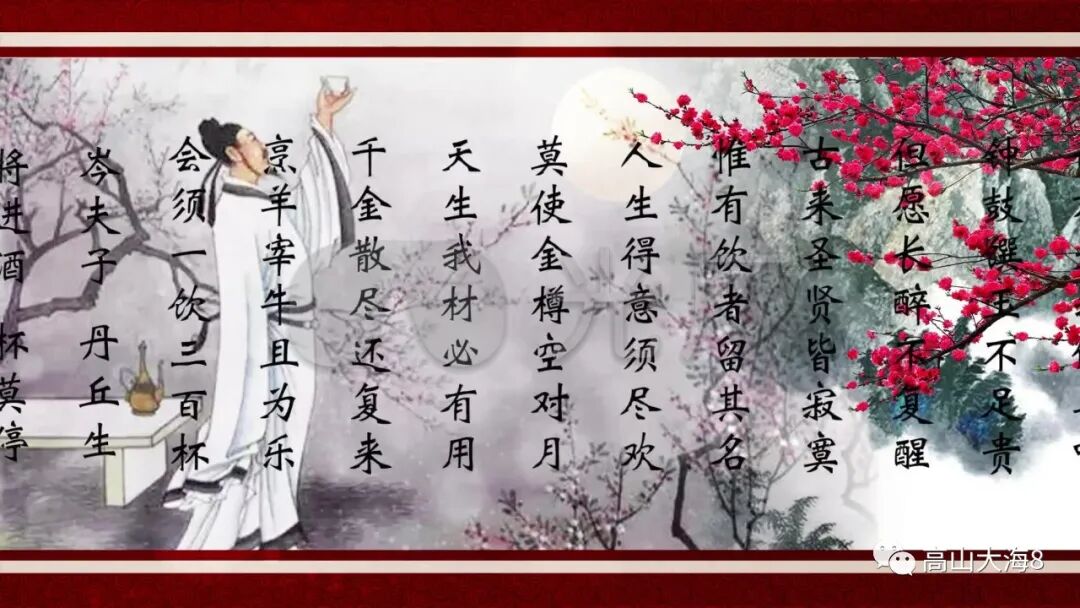 钟鼓馔玉不足贵
但愿长醉不复醒
古来圣贤皆寂寞
惟有饮者留其名
人生得意须尽欢
莫使金樽空对月
天生我材必有用
千金散尽还复来
烹羊宰牛且为乐
会须一饮三百杯
岑夫子 丹丘生
将进酒 杯莫停
高山大海8